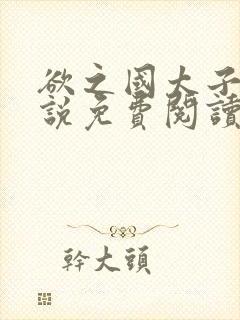 欲之國大子
說免費閱讀
幹大頭